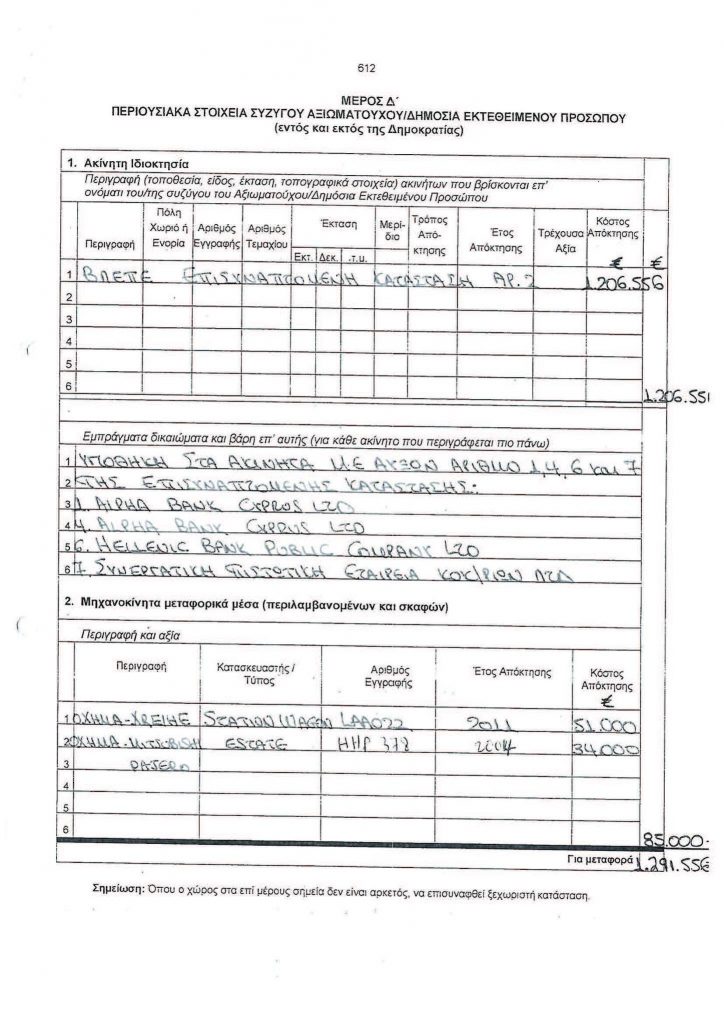 612
ΜΕΡΟΣ Δ΄
ΠΕΡΙΟΥΣΙΑΚΑ ΣΤΟΙΧΕΙΑ ΣΥΖΥΓΟΥ ΑΞΙΩΜΑΤΟΥΧΟΥ/ΔΗΜΟΣΙΑ ΕΚΤΕΘΕΙΜΕΝΟΥ ΠΡΟΣΩΠΟΥ
(εντός και εκτός της Δημοκρατίας)
1. Ακίνητη Ιδιοκτησία
Περιγραφή (τοποθεσία, είδος, έκταση, τοπογραφικά στοιχεία) ακινήτων που βρίσκονται επ'
ονόματι του/της συζύγου του Αξιωματούχου/Δημόσια Εκτεθειμένου Προσώπου
Περιγραφή Πόλη Χωριό ή Ενορία Αριθμός Εγγραφής Αριθμός Τεμαχίου Έκταση Μερί-διο Τρόπος Από-κτησης Έτος Απόκτησης Τρέχουσα Αξία Κόστος Απόκτησης
Εκτ. Δεκ. .τ.μ. € €
1 ΒΛΕΠΕ ΕΠΙΣΥΝΑΠΤΟΜΕΝΗ ΚΑΤΑΣΤΑΣΗ ΑΡ. 2 1.206.556
2
3
4
5
6
1.206.55
Εμπράγματα δικαιώματα και βάρη επ' αυτής (για κάθε ακίνητο που περιγράφεται πιο πάνω)
1 ΥΠΟΘΗΚΗ ΣΤΑ ΑΚΙΝΗΤΑ ΜΕ ΑΥΞΟΝ ΑΡΙΘΜΟ 1,4,6 και 7
2 ΤΗΣ ΕΠΙΣΥΝΑΠΤΟΜΕΝΗΣ ΚΑΤΑΣΤΑΣΗΣ:
3 1. ALPHA BANK CYPRUS LTD
4 4. ALPHA BANK CYPRUS LTD
5 6. HELLENIC BANK PUBLIC COMPANY LTD
6 7. ΣΥΝΕΡΓΑΤΙΚΗ ΠΙΣΤΩΤΙΚΗ ΕΤΑΙΡΕΙΑ ΚΟΚ/ΡΙΩΝ ΛΤΔ
2. Μηχανοκίνητα μεταφορικά μέσα (περιλαμβανομένων και σκαφών)
Περιγραφή και αξία
Περιγραφή Κατασκευαστής / Τύπος Αριθμός Εγγραφής Έτος Απόκτησης Κόστος Απόκτησης
€
1 ΟΧΗΜΑ- STATION WAGON LAA022 2011 51.000
2 ΟΧΗΜΑ-MITSUBISHI ESTATE HHP 378 2004 34.000
3 PAJERO
4
5
6
85.000
Για μεταφορά 1.291.556
Σημείωση: Όπου ο χώρος στα επί μέρους σημεία δεν είναι αρκετός, να επισυναφθεί ξεχωριστή κατάσταση.